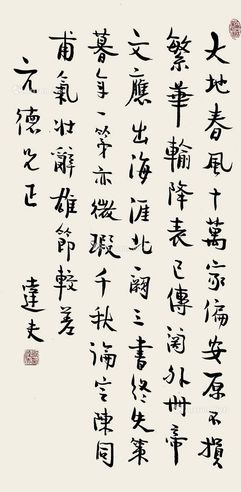 大地春風十萬家偏安原不損
繁華輸降表已傳關外冊帝
文應出海涯北闕三書終失策
暮年一第亦微瑕千秋論定陳同
甫氣壯辭雄節較差
元德兄正
達夫